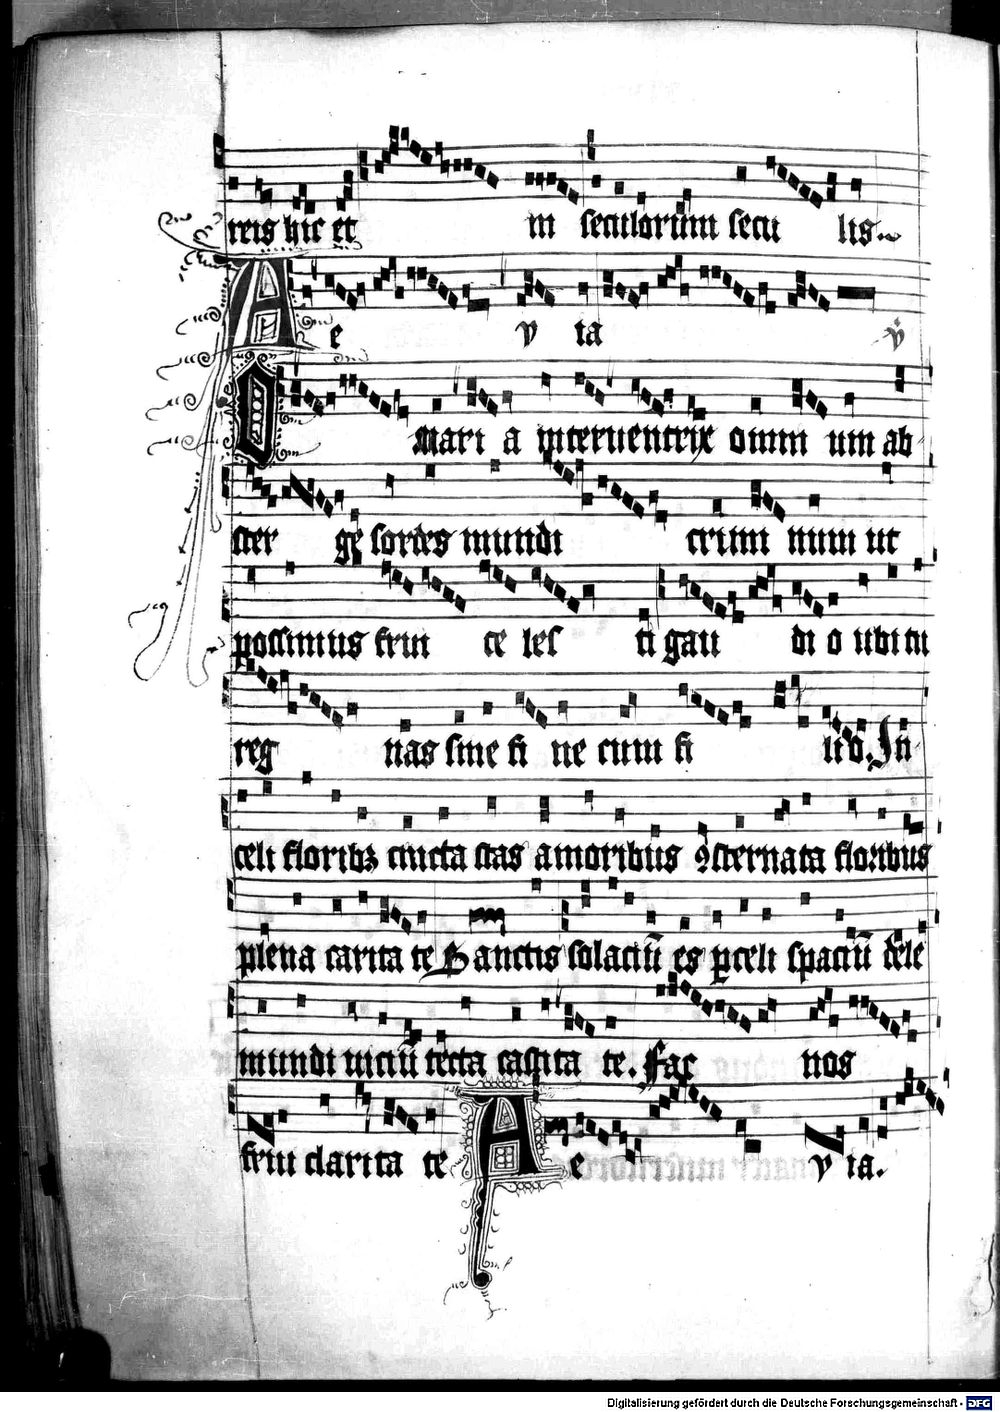 reis hic et in seculorum secu lis
A e v ia v̇
O Mari a interuentrix omin um ab
ster ge sordes mundi crimi num ut
possimus frui ce les ti gau di o ubi tu
reg nas sine fi ne cum fi lio. In
celi floribꝫ cincta stas amoribus ꝯsternata floribus
plena carita te Sanctis solaciū es ꝑ celi spaciū dele
mundi viciū tecta castita te. Fac nos
frui clarita te A e v ia.
Digitalisierung gefördert durch die Deutsche Forschungsgemeinschaft - DFG